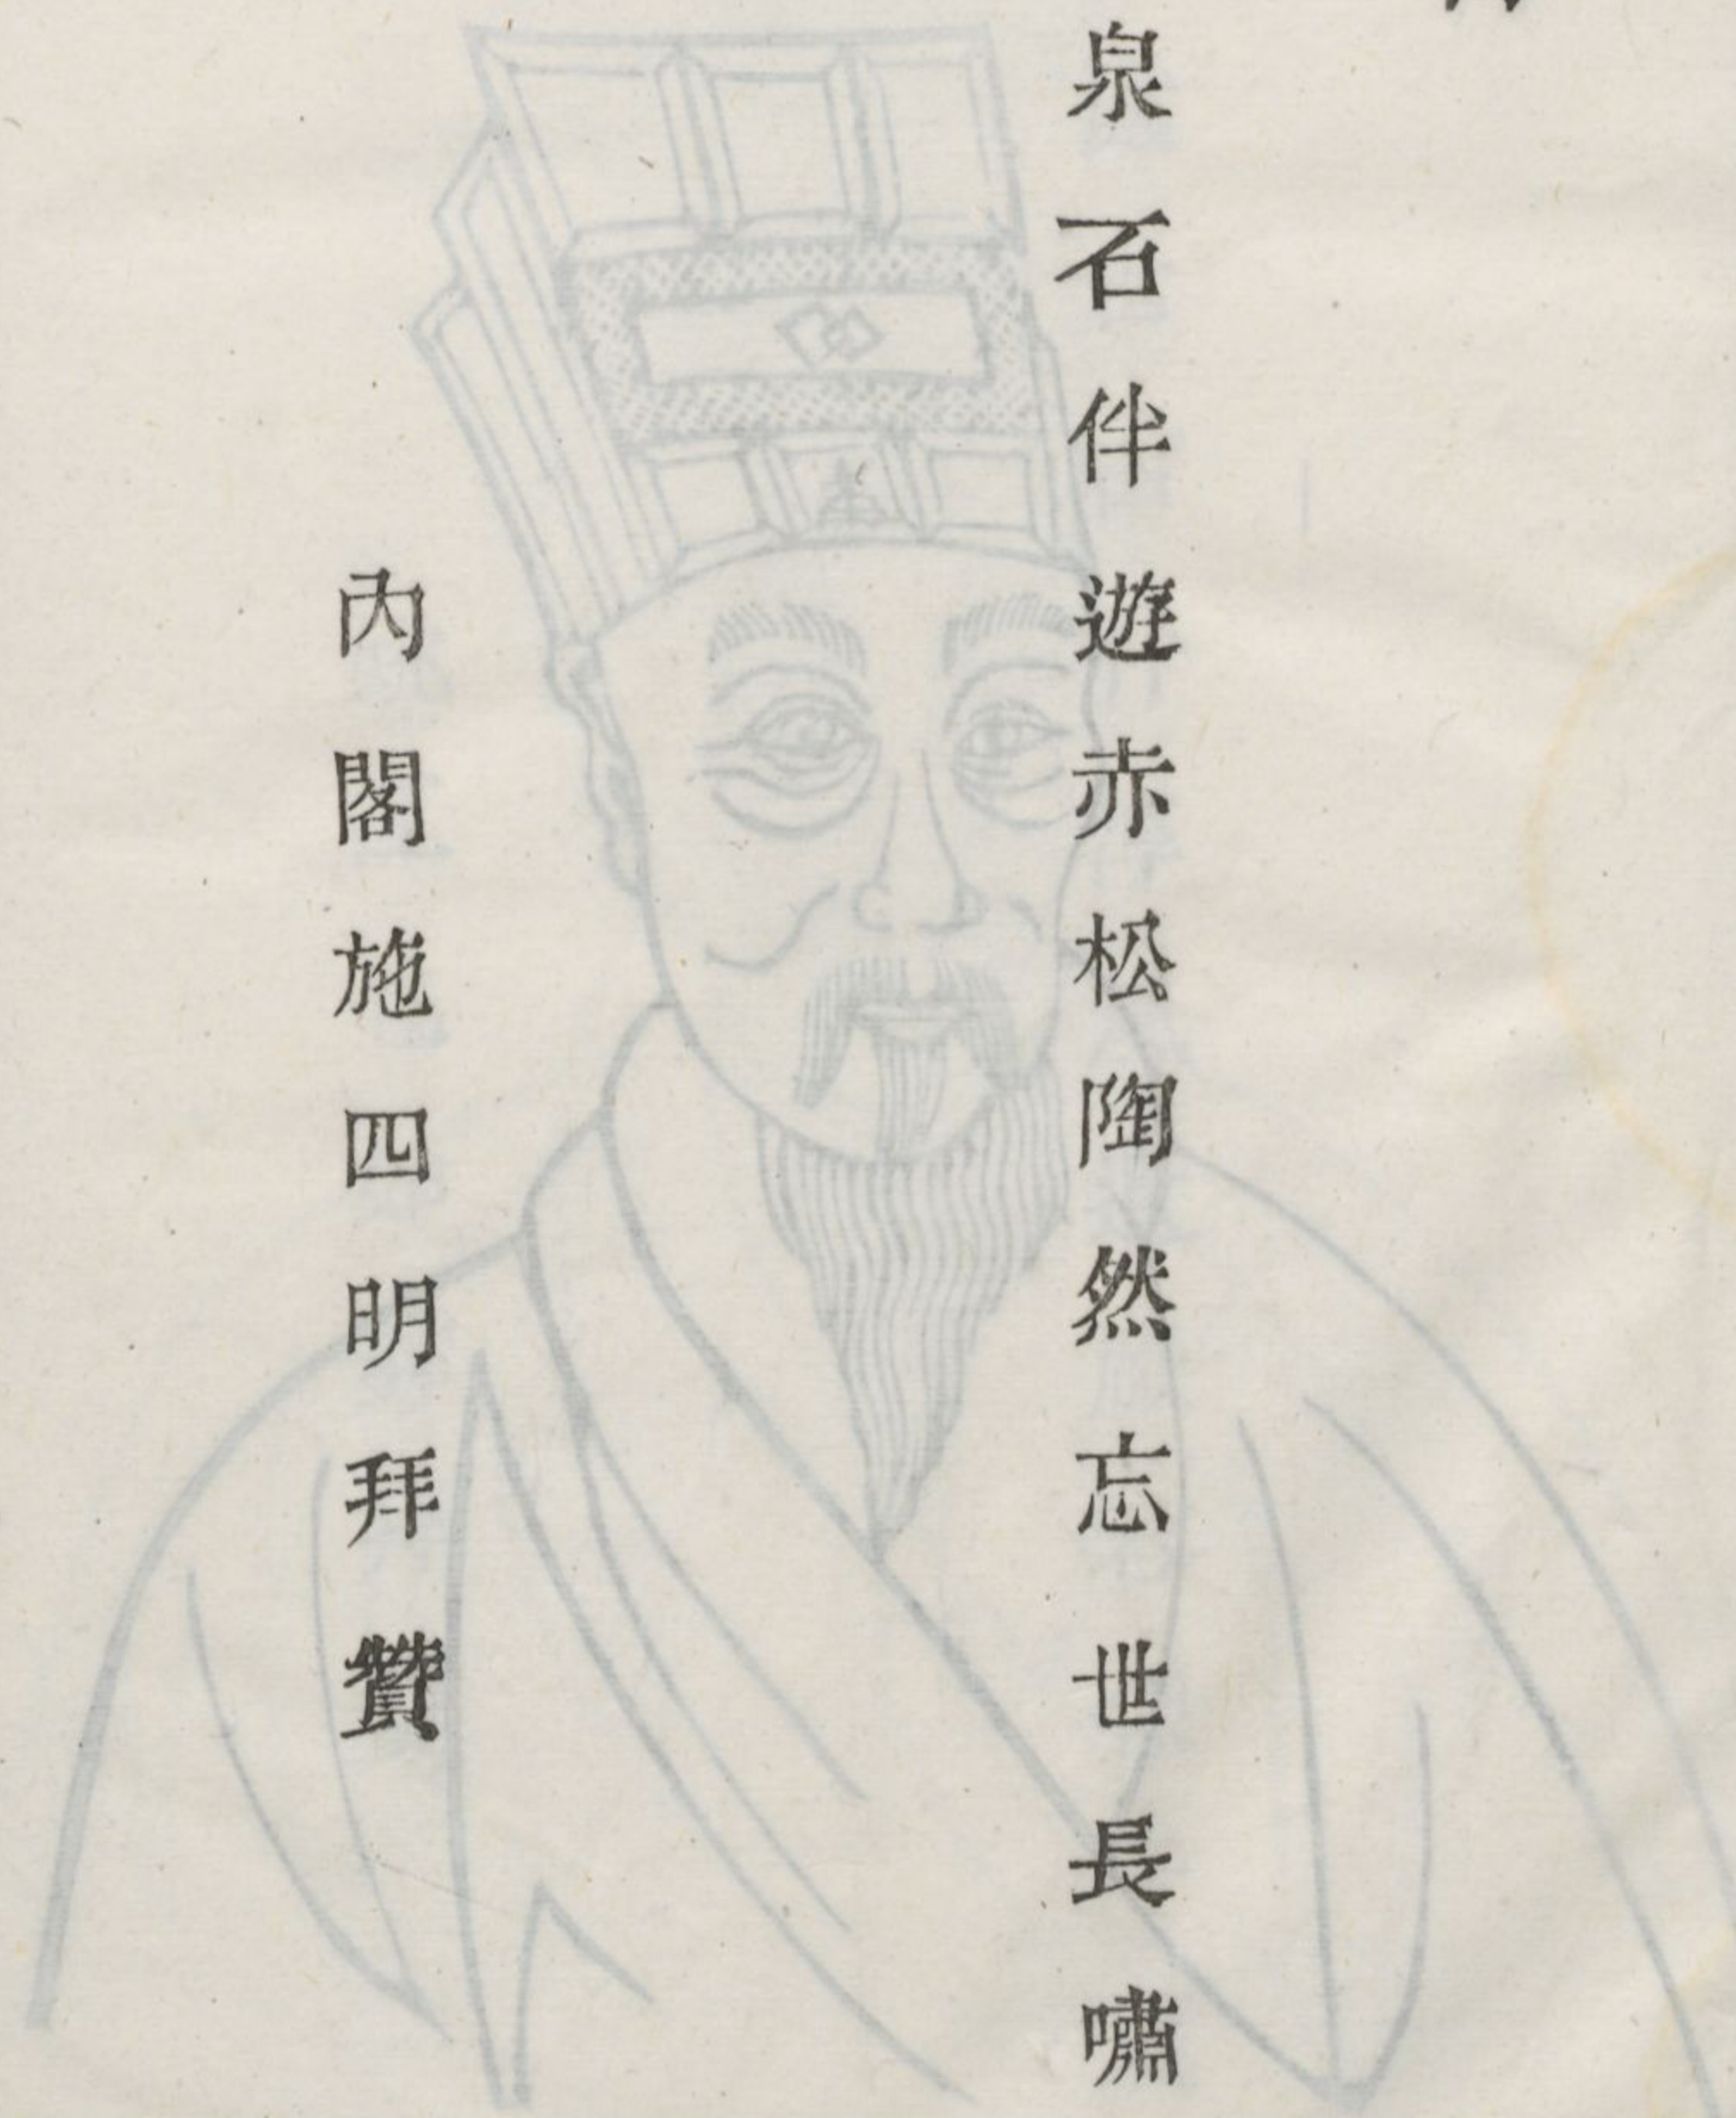 泉石伴遊赤松陶然忘世長嘯
內閣施四明拜贊